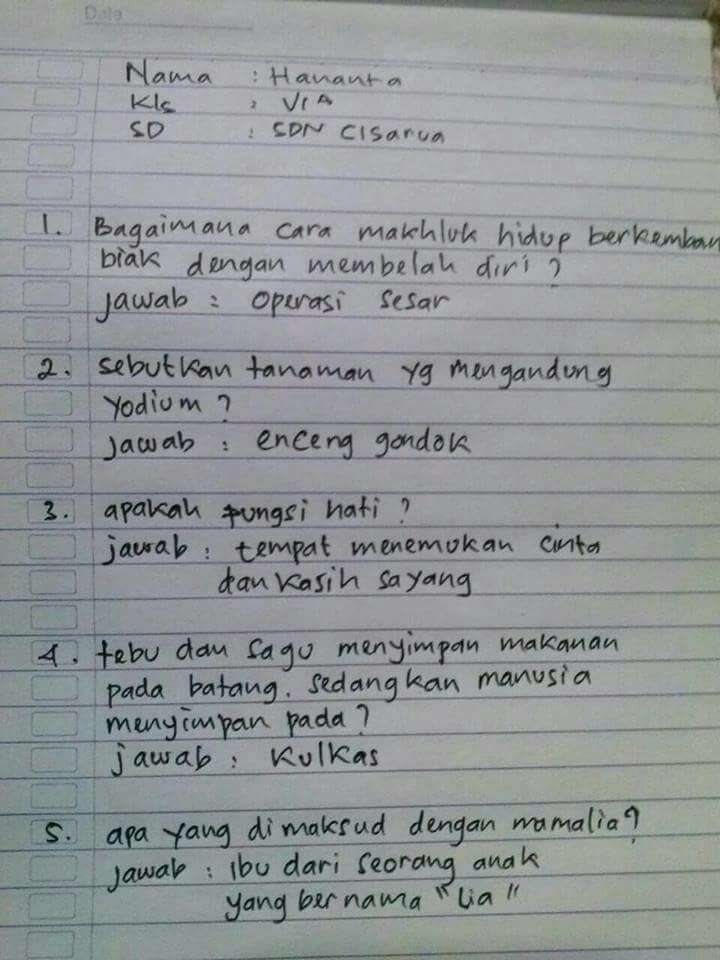 Date
Nama : Hananta
Kls : VIA
SD : SDN Cisarua
1. Bagaimana cara makhluk hidup berkemban
biak dengan membelah diri ?
jawab : operasi sesar
2. sebutkan tanaman yg mengandung
yodium ?
jawab : enceng gondok
3. apakah fungsi hati ?
jawab : tempat menemukan cinta
dan kasih sayang
4. tebu dan sagu menyimpan makanan
pada batang. sedangkan manusia
menyimpan pada ?
jawab : kulkas
5. apa yang di maksud dengan mamalia ?
jawab : ibu dari seorang anak
yang bernama "Lia"